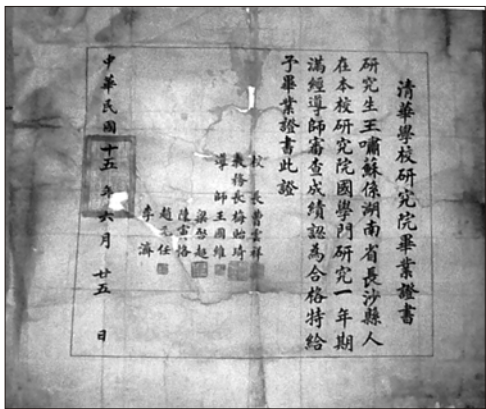 清華學校研究院畢業證書
研究生王嘯蘇係湖南省長沙縣人
在本校研究院國學門研究一年期
滿經導師審查成績認為合格特給
予畢業證書此證
校長曹雲祥
教務長梅貽琦
導師王國維
梁啓超
陳寅恪
趙元任
李濟
中華民國十五年六月廿五日